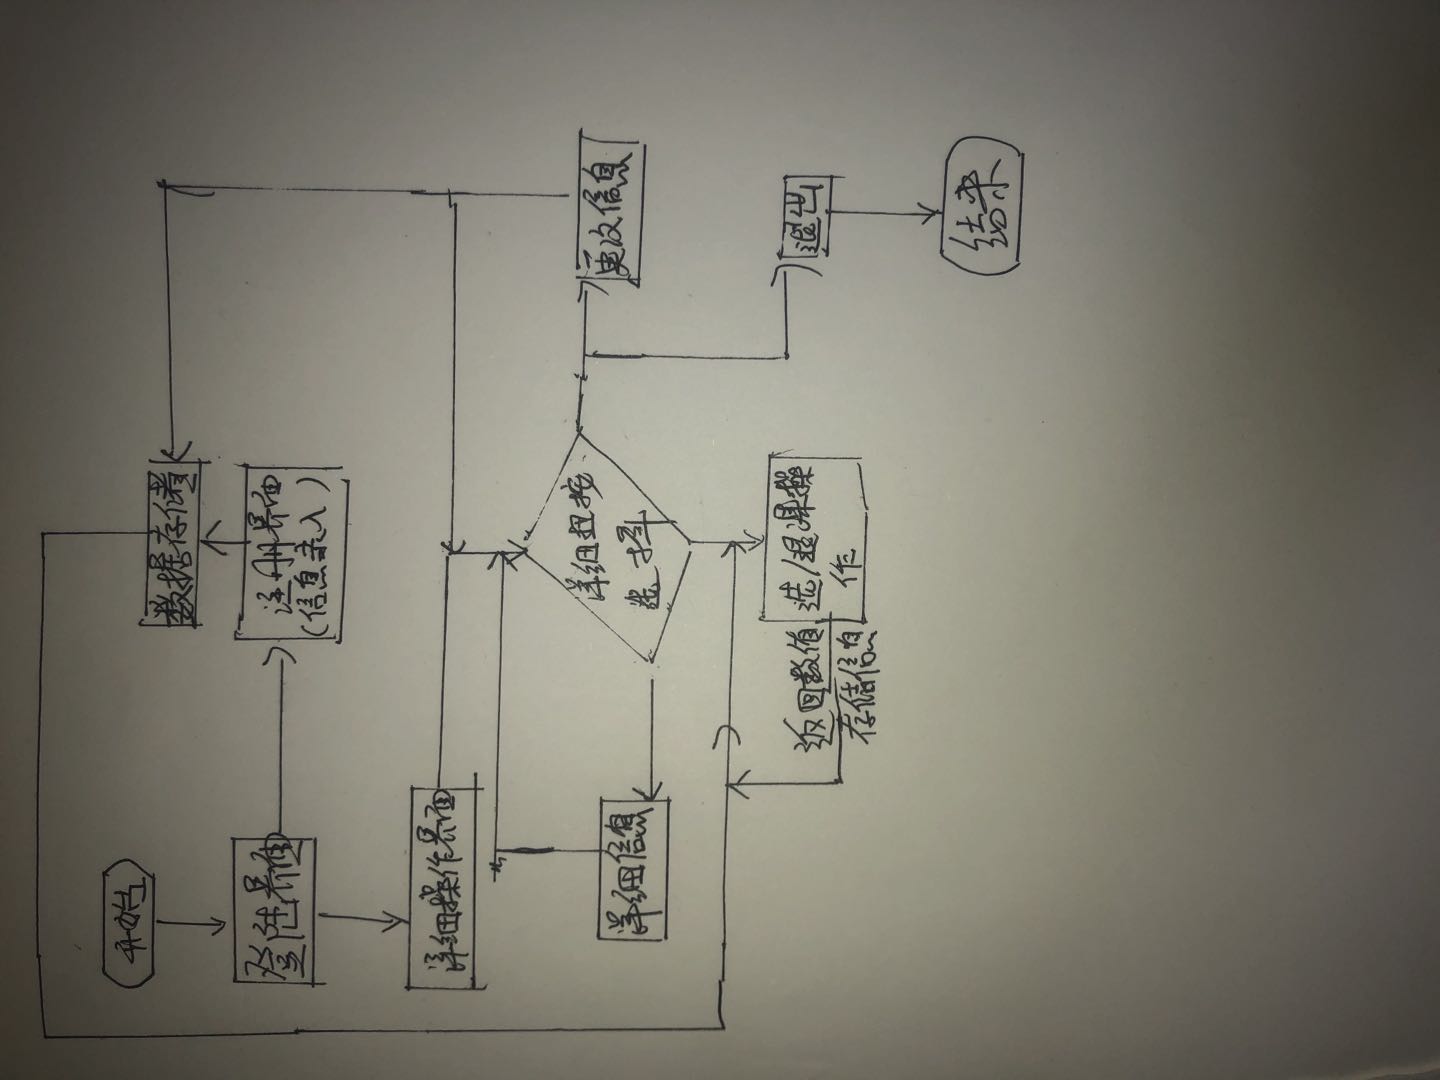 开始
数据存储
登陆界面
注册界面
(信息录入)
详细操作界面
详细扭按
选择
详细信息
更改信息
返回数值
存储信息
选/退课操
作
退出
结束